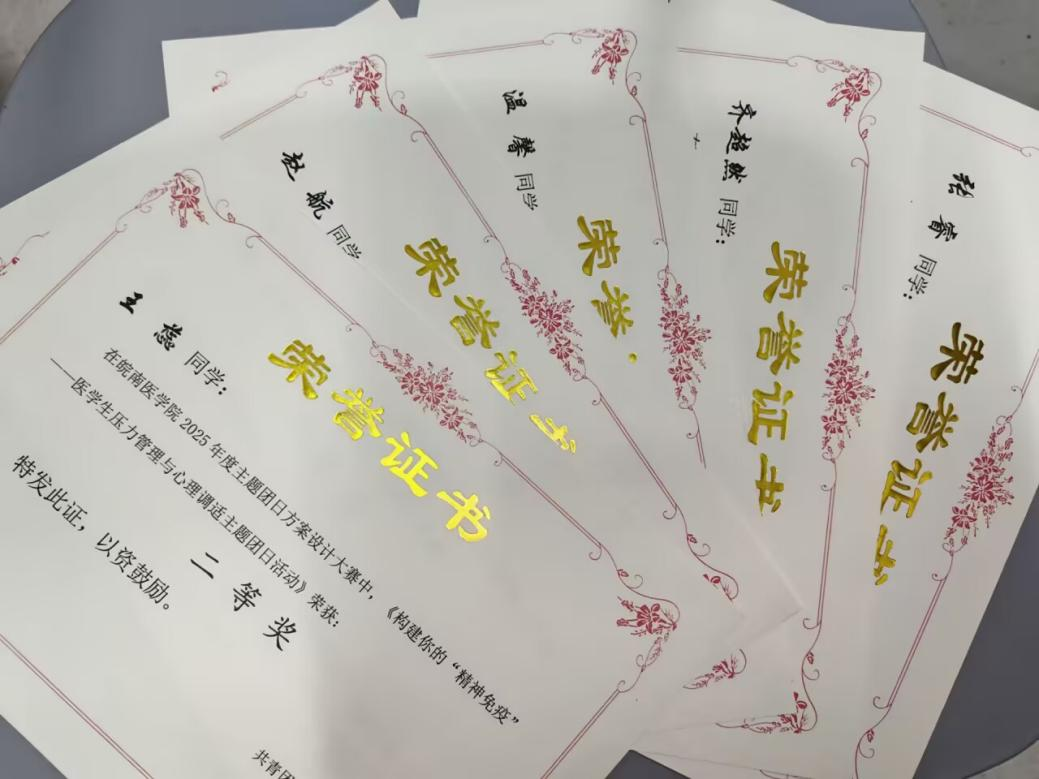 荣誉证书
王蕊 同学：
在皖南医学院2025年度主题团日方案设计大赛中，《构建你的“精神免疫”
——医学生压力管理与心理调适主题团日活动》荣获：
二等奖
特发此证，以资鼓励。
共青团
荣誉证书
赵航 同学
荣誉
温馨 同学
荣誉证书
齐超然 同学：
荣誉证书
张睿 同学：